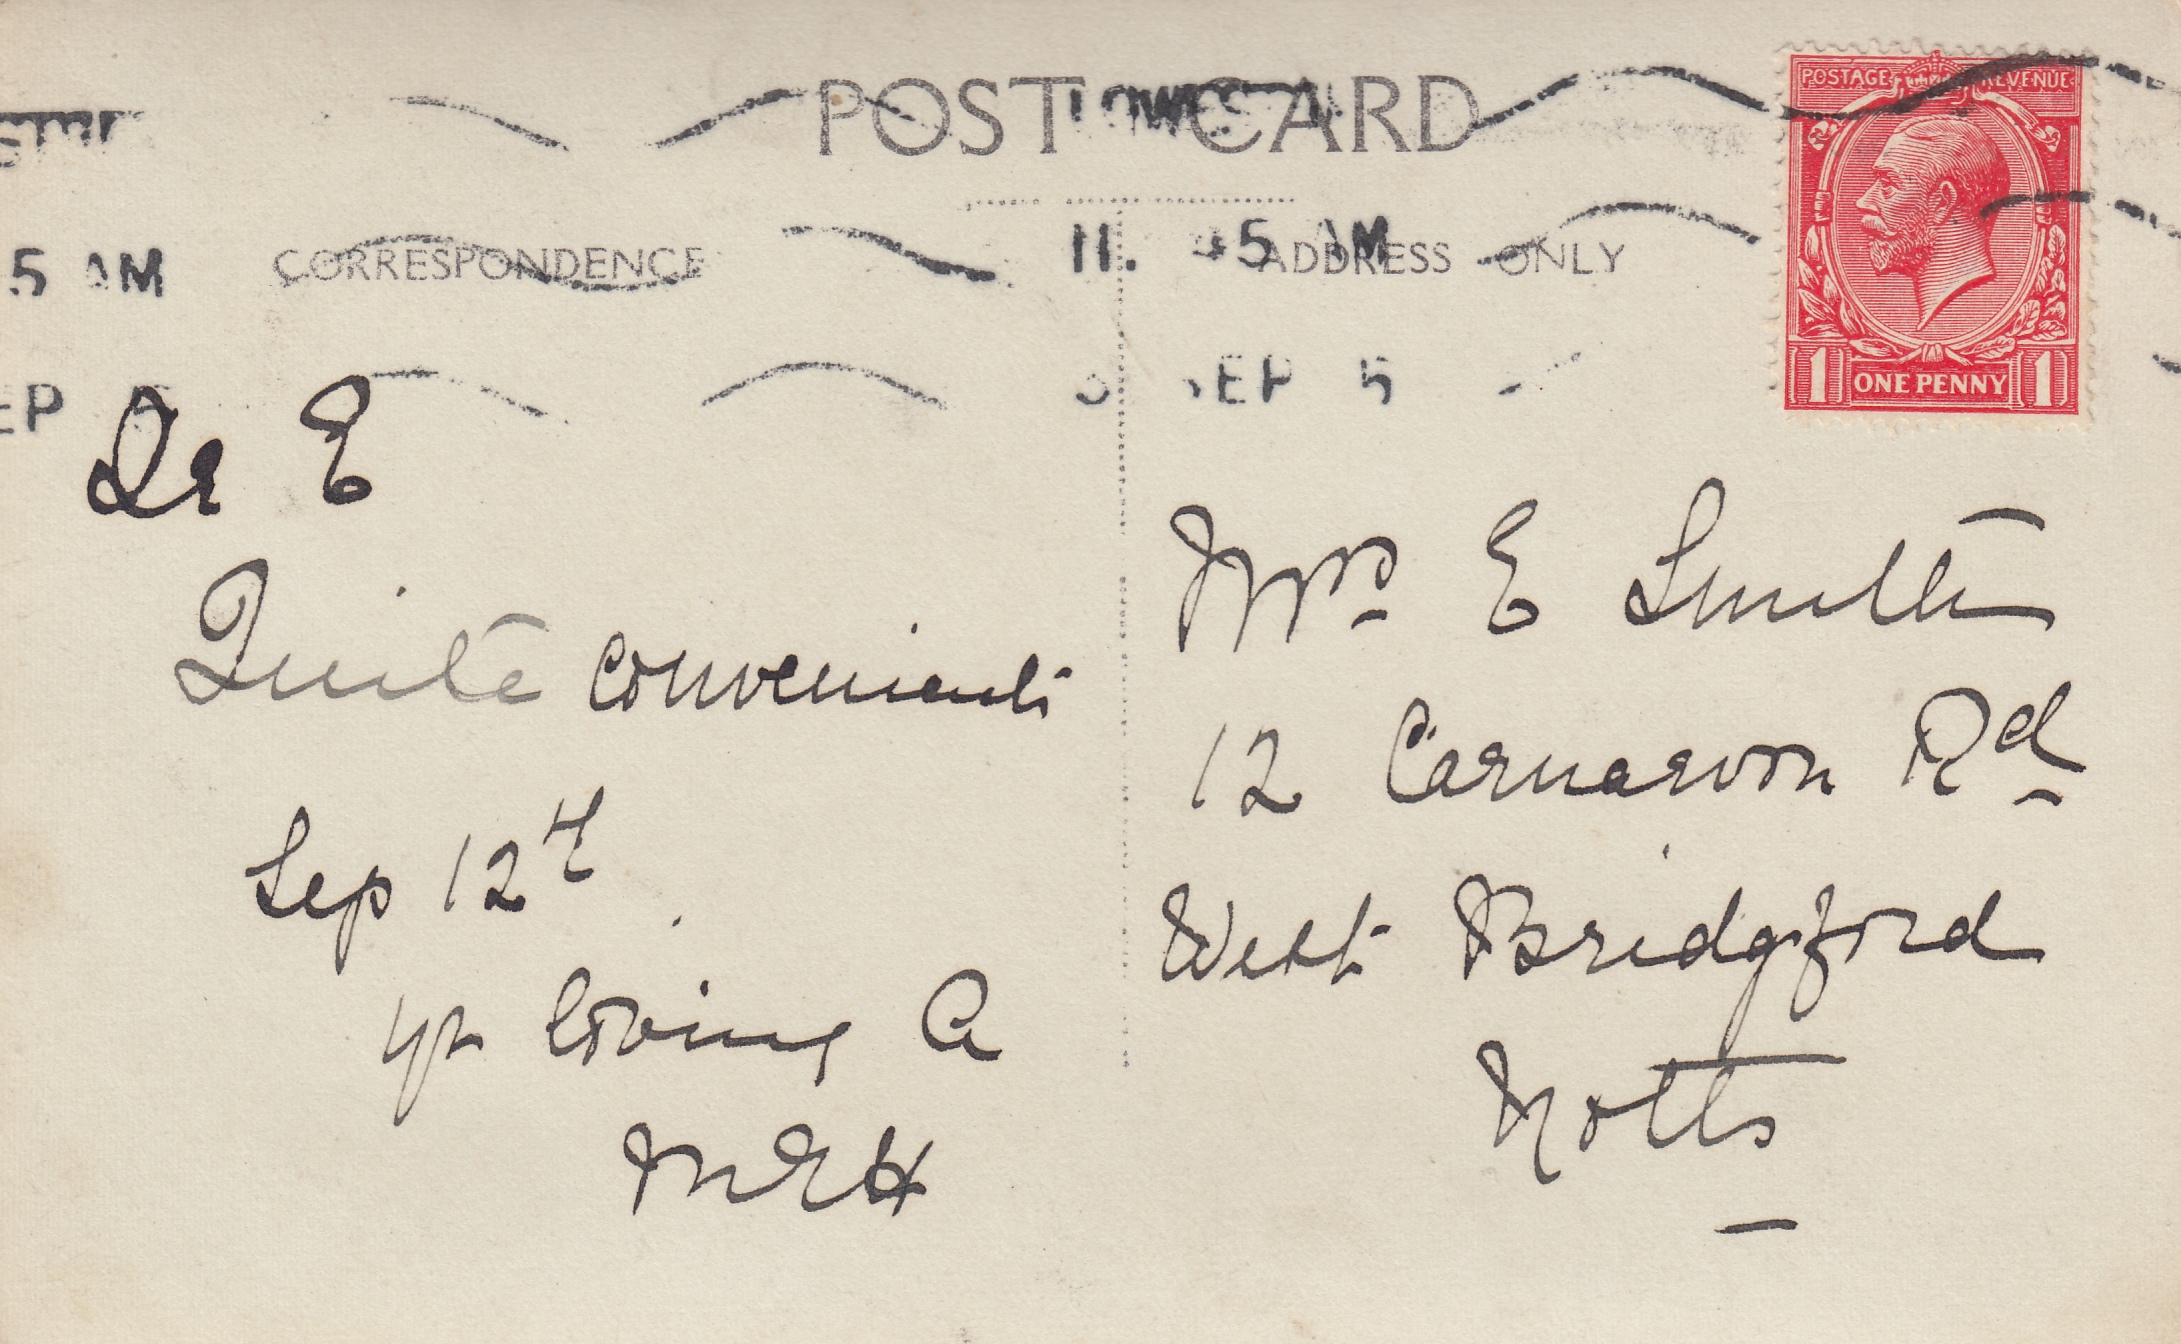 POST CARD
POSTAGE REVENUE
5 AM
CORRESPONDENCE
11. 45 AM
ADDRESS ONLY
SEP 5
1 ONE PENNY 1
Dr E
Quite convenient
Sep 12th
yr loving A
MEH
Mrs E Smith
12 Carnarvon Rd
West Bridgford
Notts